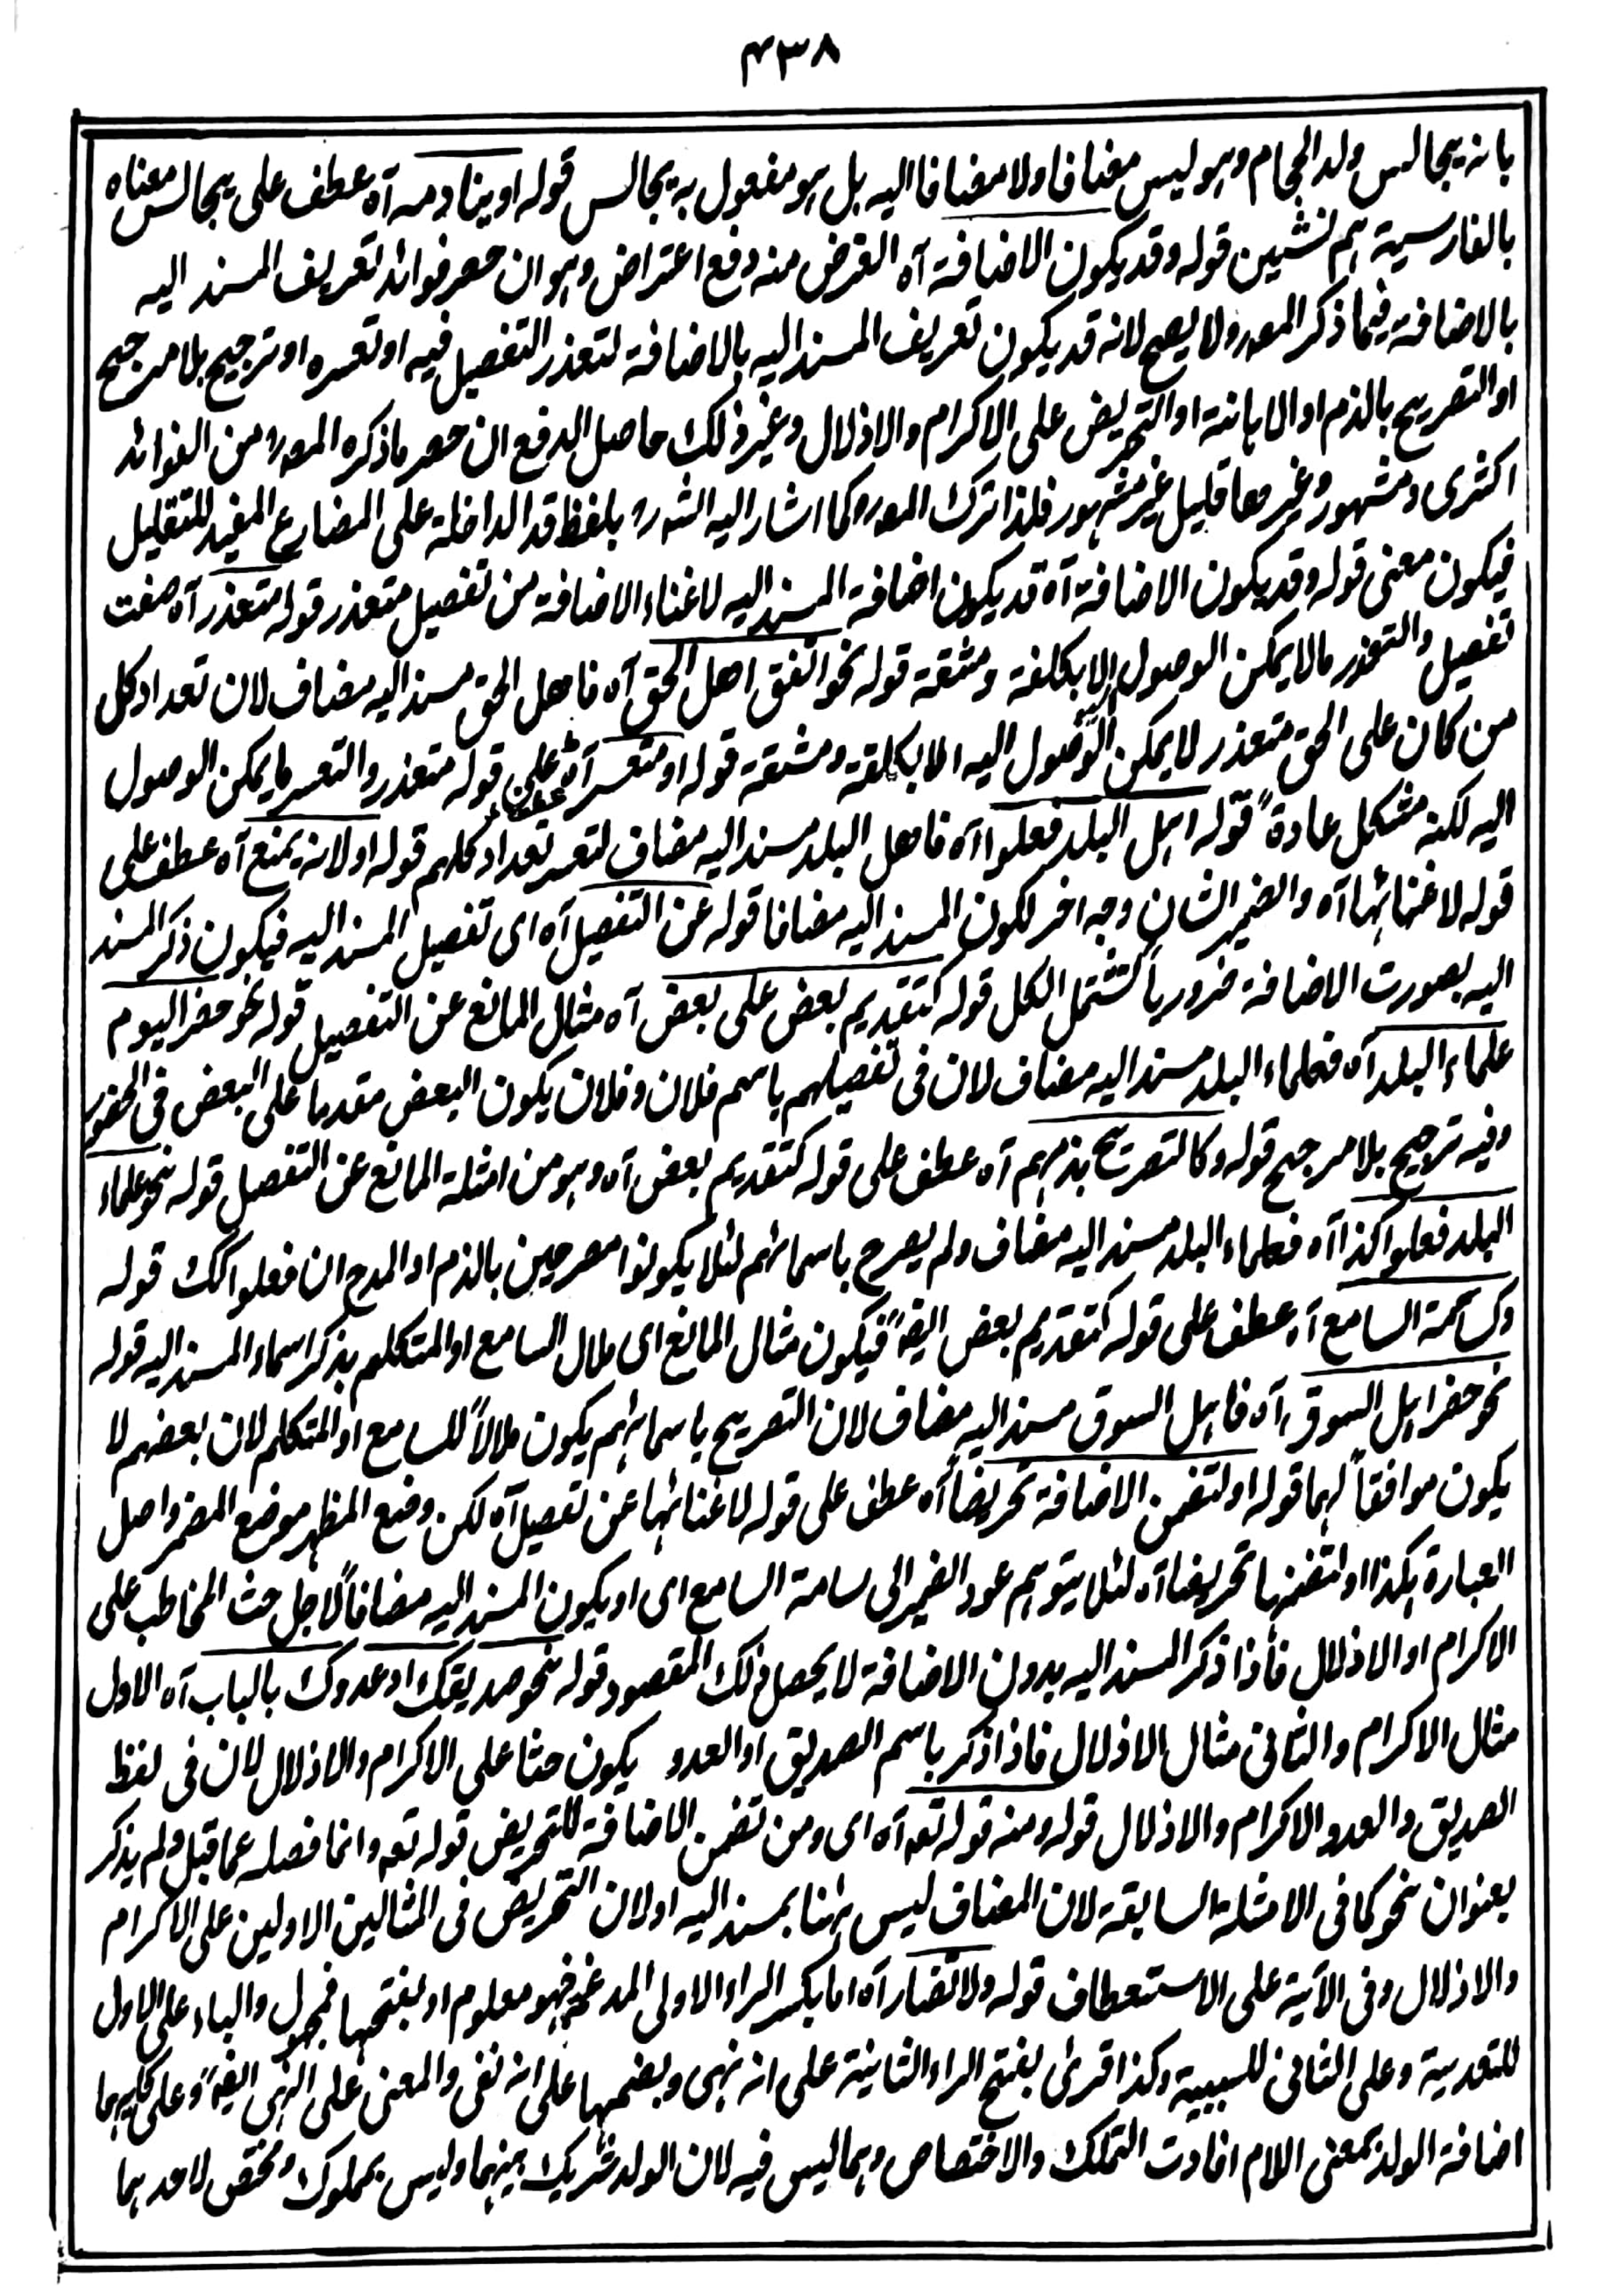 ۴۳۸
بانہ یجالس ولد الحجام وہو لیس مضافا ولا مضافا الیہ بل ہو مفعول بہ یجالس قولہ او ینادمہ آہ عطف علی یجالس معناہ
بالفارسیۃ ہم نشین قولہ وقد یکون الاضافۃ آہ الغرض منہ دفع اعتراض وہو ان حصر فوائد تعریف المسند الیہ
بالاضافۃ فیما ذکر المصر ولا یصح لانہ قد یکون تعریف المسند الیہ بالاضافۃ لتعذر التفصیل فیہ او تعسرہ او ترجیح بلا مرجح
او التصریح بالذم او الاہانتہ او التحریض علی الاکرام والاذلال وغیر ذلک حاصل الدفع ان حصر ما ذکرہ المصر من الفوائد
اکثری ومشہور وغیرھا قلیل غیر مشہور فلذا ترک المصر وکما اشار الیہ الشرر بلفظ قد الداخلۃ علی المضارع المفید للتقلیل
فیکون معنی قولہ وقد یکون الاضافۃ آہ قد یکون اضافۃ المسند الیہ لاغناء الاضافۃ من تفصیل متعذر قولہ متعذر آہ صفت
تفصیل والتعذر مالا یمکن الوصول الا بکلفۃ ومشقۃ قولہ نحو اتفق اھل الحق آہ فاھل الحق مسند الیہ مضاف لان تعداد کل
من کان علی الحق متعذر لا یمکن الوصول الیہ الا بکلفۃ ومشقۃ قولہ او متعسر آہ عطف علی قولہ متعذر والتعسر ما یمکن الوصول
الیہ لکنہ مشکل عادۃً قولہ اہل البلد فعلوا آہ فاھل البلد مسند الیہ مضاف لتعسر تعداد کلہم قولہ او لانہ یمنع آہ عطف علی
قولہ لاغنائہا آہ والضمیر الشان وجہ اخر لکون المسند الیہ مضافا قولہ عن التفصیل آہ ای تفصیل المسند الیہ فیکون ذکر المسند
الیہ بصورت الاضافۃ ضروریاً لتشتمل الکل قولہ کتقدیم بعض علی بعض آہ مثال المانع عن التفصیل قولہ نحو حضر الیوم
علماء البلد آہ فعلماء البلد مسند الیہ مضاف لان فی تفصیلہم باسم فلان وفلان یکون البعض مقدما علی البعض فی الحضور
وفیہ ترجیح بلا مرجح قولہ وکالتصریح بذمہم آہ عطف علی قولہ کتقدیم بعض آہ وہو من امثلۃ المانع عن التفصیل قولہ نحو علماء
البلد فعلوا کذا آہ فعلماء البلد مسند الیہ مضاف ولم یصرح باسمائہم لئلا یکونوا مصرحین بالذم او المدح ان فعلوا کک قولہ
وکسآمۃ السامع آہ عطف علی قولہ کتقدیم بعض ایضہً فیکون مثال المانع ای ملال السامع او المتکلم بذکر اسماء المسند الیہ قولہ
نحو حضر اہل السوق آہ فاہل السوق مسند الیہ مضاف لان التصریح باسمائہم یکون ملالاً للسامع او المتکلم لان بعضہم لا
یکون موافقاً لہما قولہ او لتضمن الاضافۃ تحریضاً آہ عطف علی قولہ لاغنائہا عن تفصیل آہ لکن وضع المظہر موضع المضمر واصل
العبارۃ ہکذا او لتضمنہا تحریضا آہ لئلا یتوہم عود الضمیر الی سامۃ السامع ای او یکون المسند الیہ مضافاً لاجل حث المخاطب علی
الاکرام او الاذلال فاذا ذکر المسند الیہ بدون الاضافۃ لا یحصل ذلک المقصود قولہ نحو صدیقک او عدوک بالباب آہ الاول
مثال الاکرام والثانی مثال الاذلال فاذا ذکر باسم الصدیق او العدو یکون حثا علی الاکرام والاذلال لان فی لفظ
الصدیق والعدو الاکرام والاذلال قولہ ومنہ قولہ تعہ آہ ای ومن تضمن الاضافۃ للتحریض قولہ تعہ وانما فصلہ عما قبل ولم یذکر
بعنوان نحو کما فی الامثلۃ السابقۃ لان المضاف لیس ہٰہنا بمسند الیہ او لان التحریض فی المثالین الاولین علی الاکرام
والاذلال وفی الآیۃ علی الاستعطاف قولہ ولا تضار آہ اما بکسر الراء الاولی المدغمۃ فہو معلوم او بفتحہا فمجہول والباء علی الاول
للتعدیۃ وعلی الثانی للسببیۃ وکذا قرئ بفتح الراء الثانیۃ علی انہ نہی وبضمہا علی انہ نفی والمعنی علی النہی ایضہً وعلی کلیہما
اضافۃ الولد بمعنی اللام افادت التملک والاختصاص وہما لیس فیہ لان الولد شریک بینہما ولیس بمملوک ومختص لاحدہما